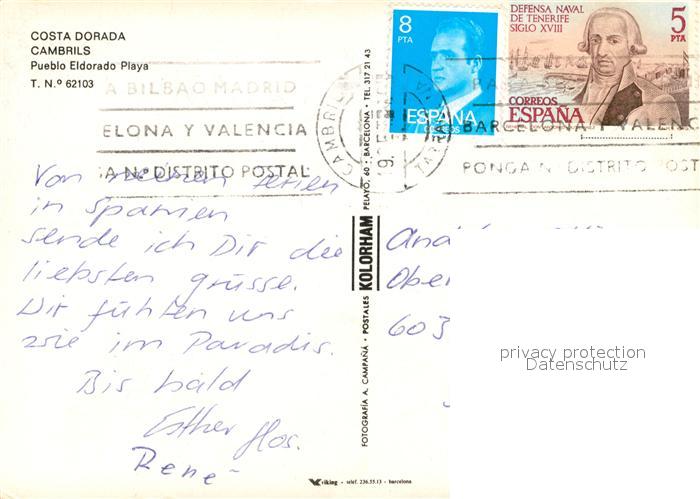 COSTA DORADA
CAMBRILS
Pueblo Eldorado Playa
T. N.º 62103
8
PTA
ESPAÑA
CORREOS
DEFENSA NAVAL
DE TENERIFE
SIGLO XVIII
5
PTA
CORREOS
ESPAÑA
A BILBAO MADRID
ELONA Y VALENCIA
A Nº DISTRITO POSTAL
CAMBRILS
BARCELONA Y VALENC
PONGA Nº DISTRITO POST
Von meinen Ferien
in Spanien
sende ich Dir die
liebsten grüsse.
Wir fühlen uns
wie im Paradis.
Bis bald
Esther
René
FOTOGRAFIA A. CAMPAÑÁ • POSTALES KOLORHAM PELAYO, 60 • BARCELONA • TEL. 317 21 43
viking - teléf. 236.55.13 - barcelona
And
Ober
603
privacy protection
Datenschutz